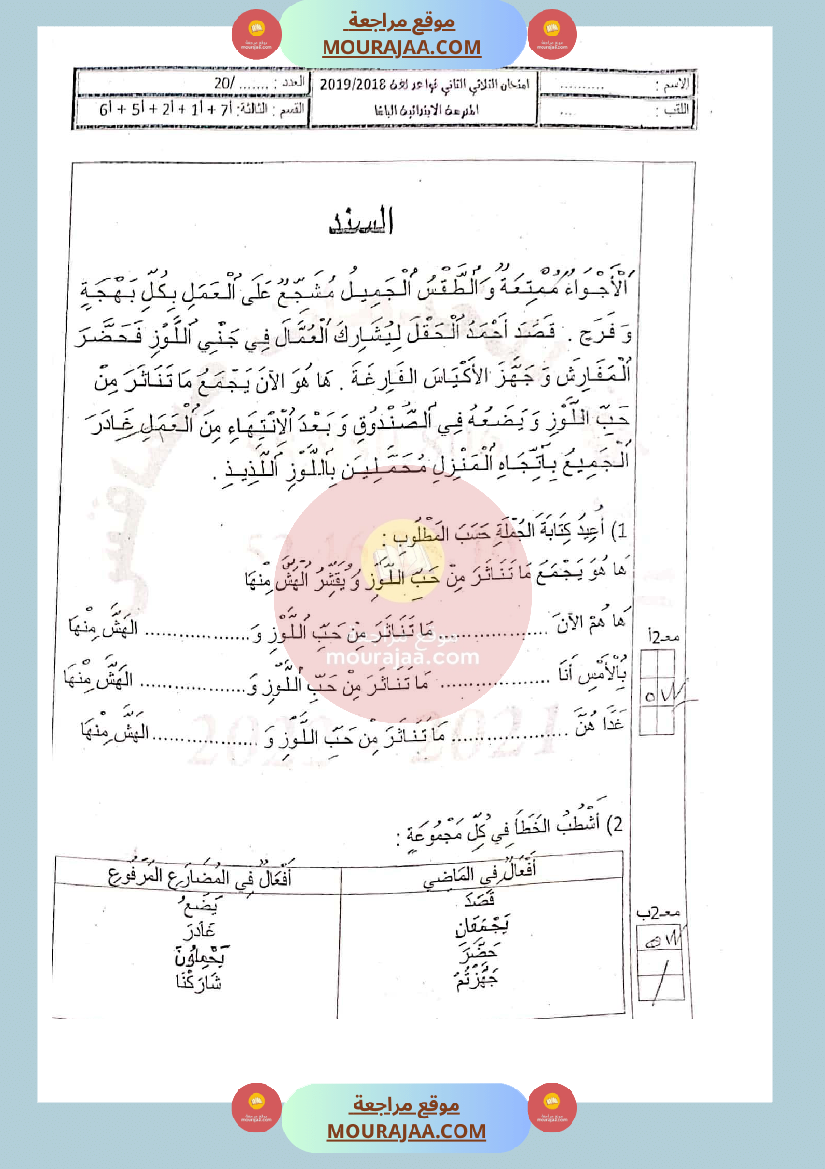 موقع مراجعة
MOURAJAA.COM
الاسم : ..........
امتحان الثلاثي الثاني قواعد لغة 2019/2018
العدد : ....... /20
اللقب : ....
المدرسة الابتدائية
القسم : الثالثة: 7أ + 1أ + 2أ + 5أ + 6أ
السند
اَلْأَجْوَاءُ مُمْتِعَةٌ وَ اَلطَّقْسُ اُلْجَمِيلُ مُشَجِّعٌ عَلَى اُلْعَمَلِ بِكُلِّ بَهْجَةٍ
وَ فَرَحٍ . قَصَدَ أَحْمَدُ اُلْحَقْلَ لِيُشَارِكَ اُلْعُمَّالَ فِي جَنْيِ اُللَّوْزِ فَحَضَّرَ
اُلْمَفَارِشَ وَ جَهَّزَ الأَكْيَاسَ الفَارِغَةَ . هَا هُوَ الآنَ يَجْمَعُ مَا تَنَاثَرَ مِنْ
حَبِّ اللَّوْزِ وَ يَضَعُهُ فِي اُلصُّنْدُوقِ وَ بَعْدَ اُلْاِنْتِهَاءِ مِنَ اُلْعَمَلِ غَادَرَ
اُلْجَمِيعُ بِاُتِّجَاهِ اُلْمَنْزِلِ مُحَمَّلِينَ بِاُللَّوْزِ اُللَّذِيذِ .
1) أُعِيدُ كِتَابَةَ الجُمْلَةِ حَسَبَ المَطْلُوبِ :
هَا هُوَ يَجْمَعَ مَا تَنَاثَرَ مِنْ حَبِّ اللَّوْزِ وَ يُقَشِّرُ الهَشَّ مِنْهَا
هَا هُمْ الآنَ ................... مَا تَنَاثَرَ مِنْ حَبِّ اللَّوْزِ وَ.................. الهَشَّ مِنْهَا
معـ2أ
بِالْأَمْسِ أَنَا ................... مَا تَنَاثَرَ مِنْ حَبِّ اللَّوْزِ وَ.................. الهَشَّ مِنْهَا
غَدًا هُنَّ .................... مَا تَنَاثَرَ مِنْ حَبِّ اللَّوْزِ وَ .................. الهَشَّ مِنْهَا
موقع مراجعة
mourajaa.com
2021 2022
2) أَشْطُبُ الخَطَأَ فِي كُلِّ مَجْمُوعَةٍ :
أَفْعَالٌ فِي المَاضِي
أَفْعَالٌ فِي المُضَارِعِ المَرْفُوعِ
قَصَدَ
يَضَعُ
معـ2ب
يَجْمَعَانِ
غَادَرَ
حَضَّرَ
يَحْمِلُونَ
جَهَّزْتُمْ
شَارَكْنَا
موقع مراجعة
MOURAJAA.COM